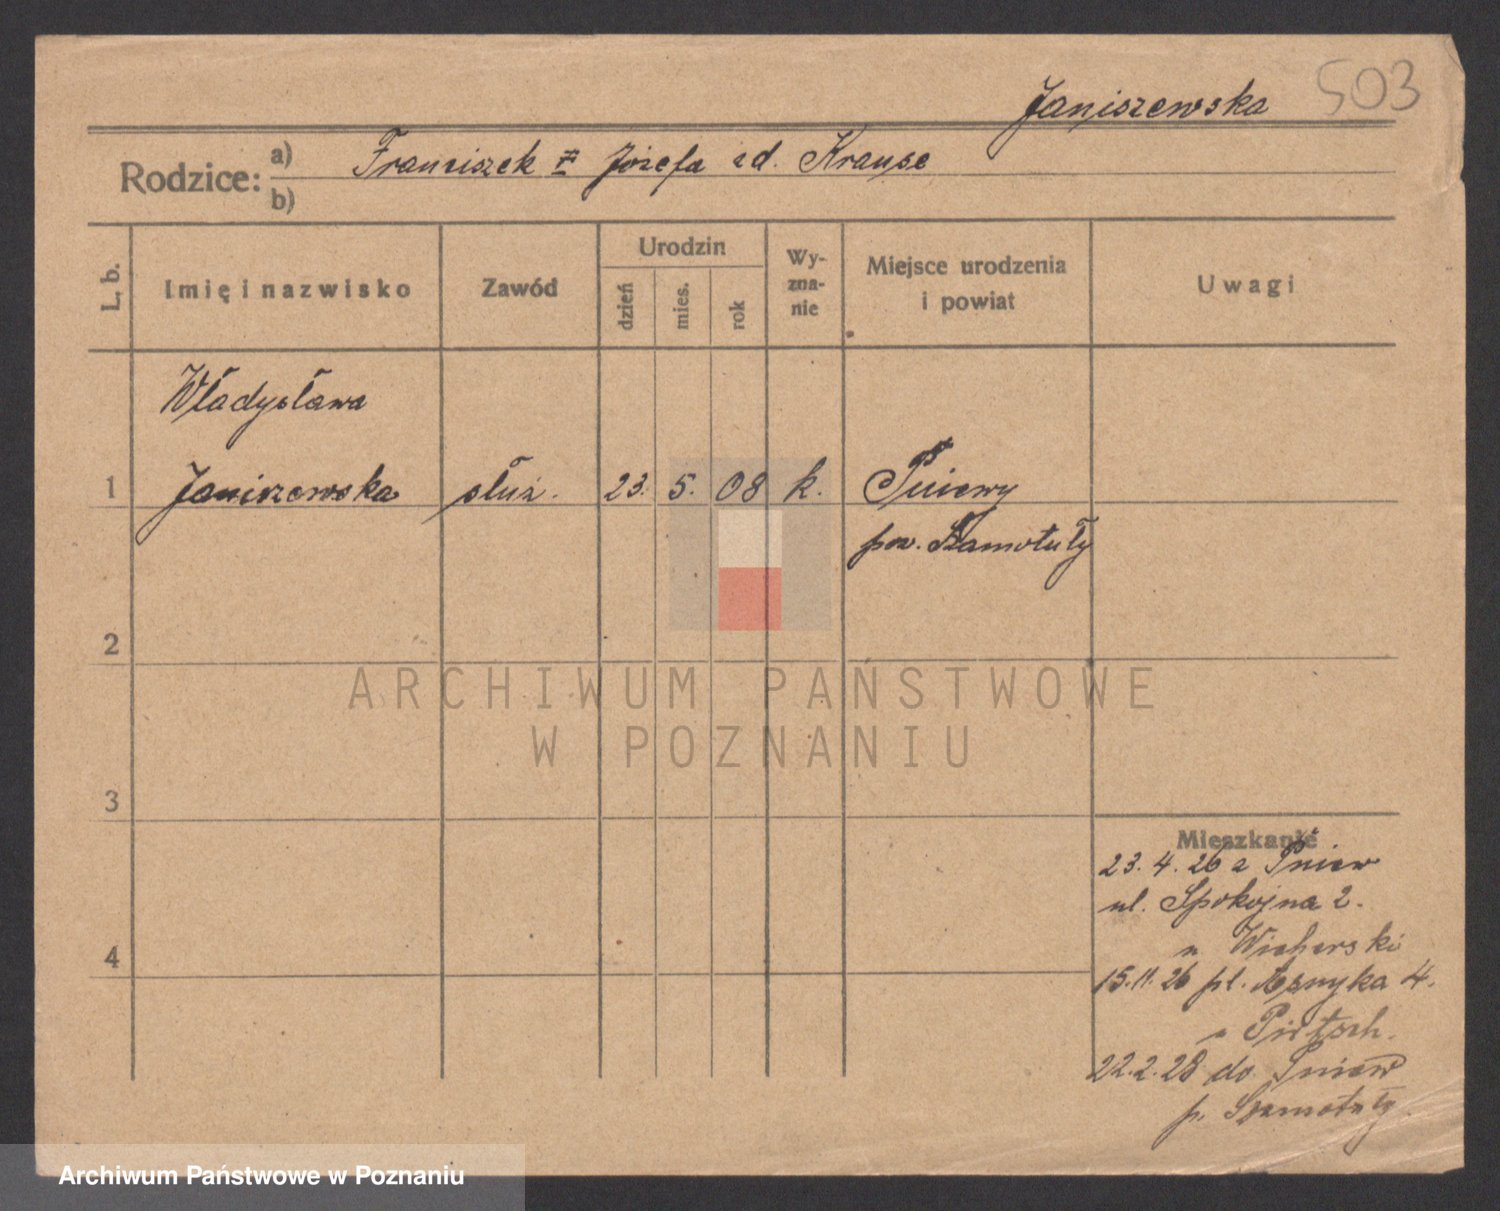 Janiszewska 503
Rodzice: a) Franciszek Józefa zd. Krause
b)
L. b.
Imię i nazwisko
Zawód
Urodzin
dzień
mies.
rok
Wy-
zna-
nie
Miejsce urodzenia
i powiat
Uwagi
Władysława
1 Janiszewska służ. 23. 5. 08 k. Pniewy
pow. Szamotuły
2
3
4
Mieszkanie
23. 4. 26 z Pniew
ul. Spokojna 2.
u Wicherski
15.11.26 pl. Asnyka 4.
u Pietsch.
22.2.28 do Pniew
p. Szamotuły.
ARCHIWUM PAŃSTWOWE
W POZNANIU
Archiwum Państwowe w Poznaniu